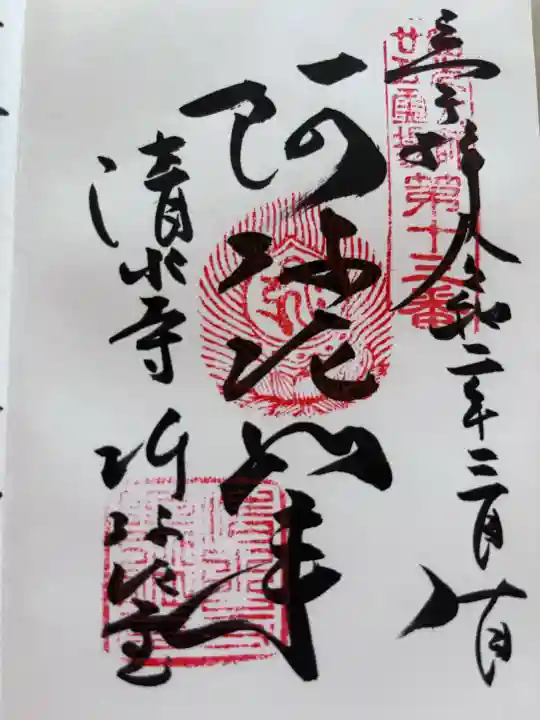 奉拝 令和二年三月廿日
廿五霊場 第十三番
阿弥陀如来
清水寺 阿弥陀堂